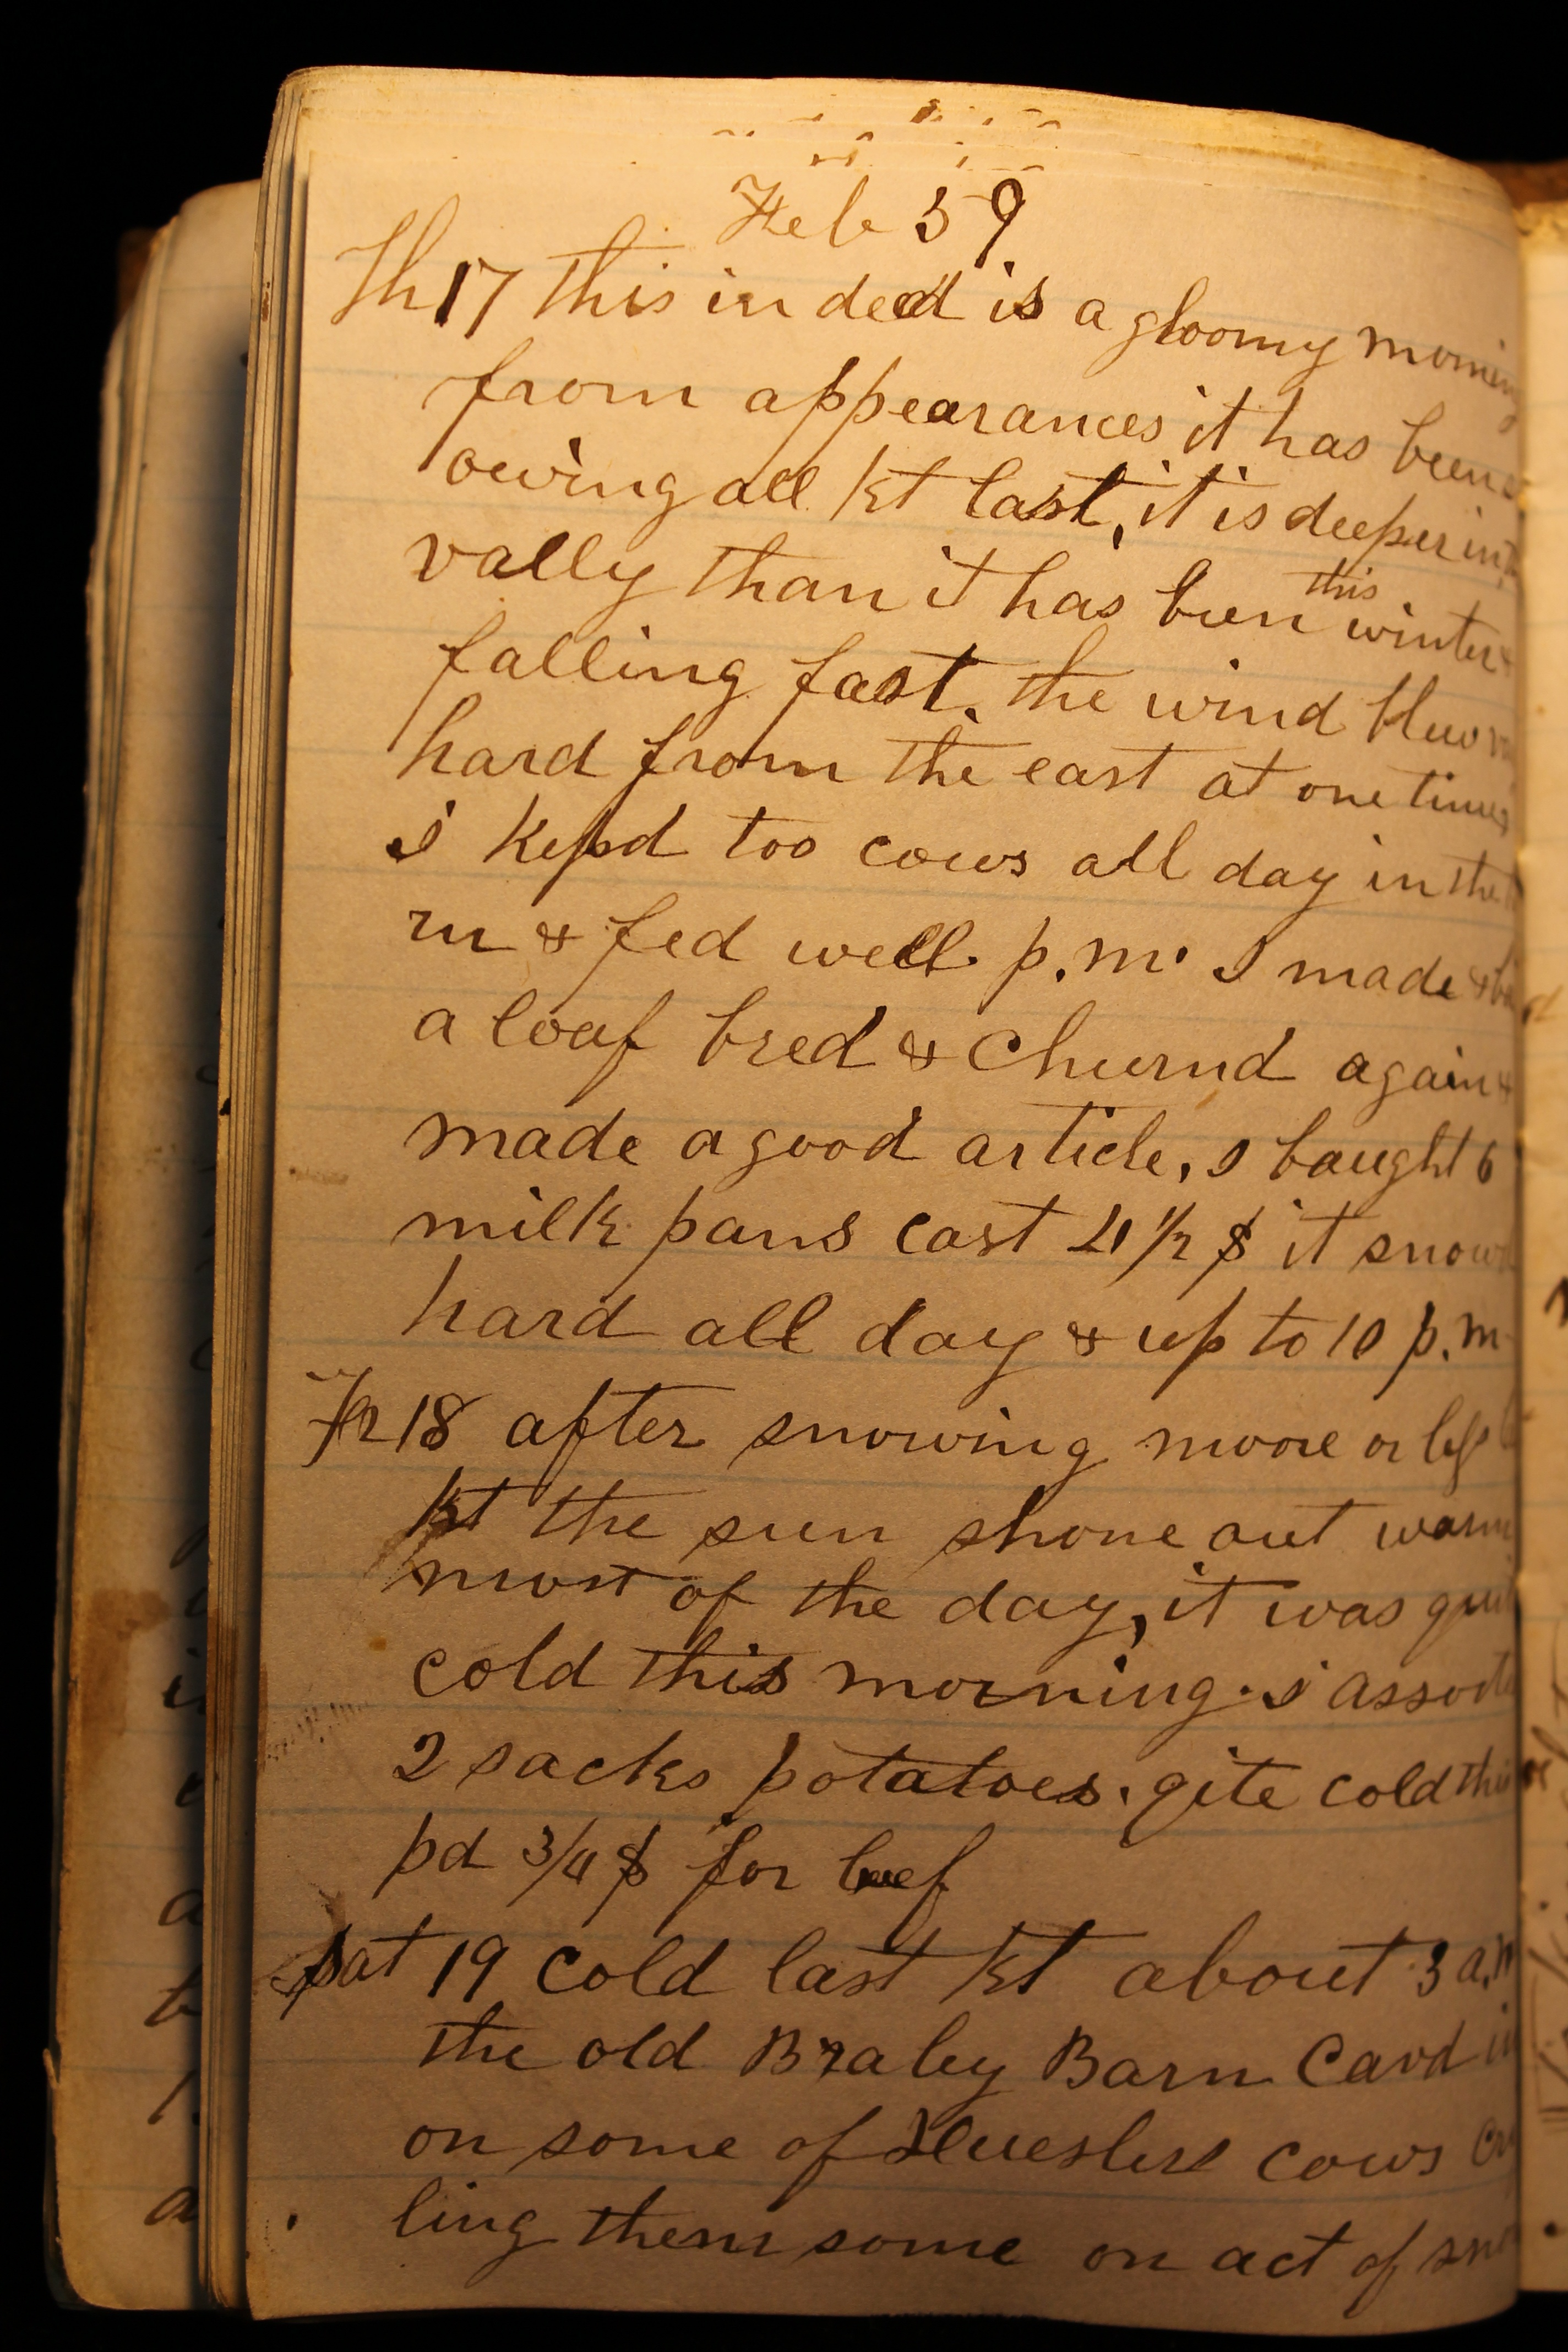 Feb 59
Th 17 this in deed is a gloomy morning
from appearances it has been s
owing all kt last, it is deeper in
vally than it has been this winter &
falling fast. the wind blew
hard from the east at one time,
i kepd too cows all day in the
rn & fed well. p.m. I made &
a loaf bred & Churnd again &
made a good article, I baught 6
milk pans cast 4 1/2 $ it snow
hard all day & up to 10 p.m
Fr 18 after snowing moore or less
kt the sun shone out warm
most of the day, it was quit
cold this morning. i assorte
2 sacks potatoes. qite cold this
pd 3/4 $ for beef
Sat 19 Cold last kt about 3 a.m
the old Braley Barn Cavd in
on some of cows
ling them some on act of sno